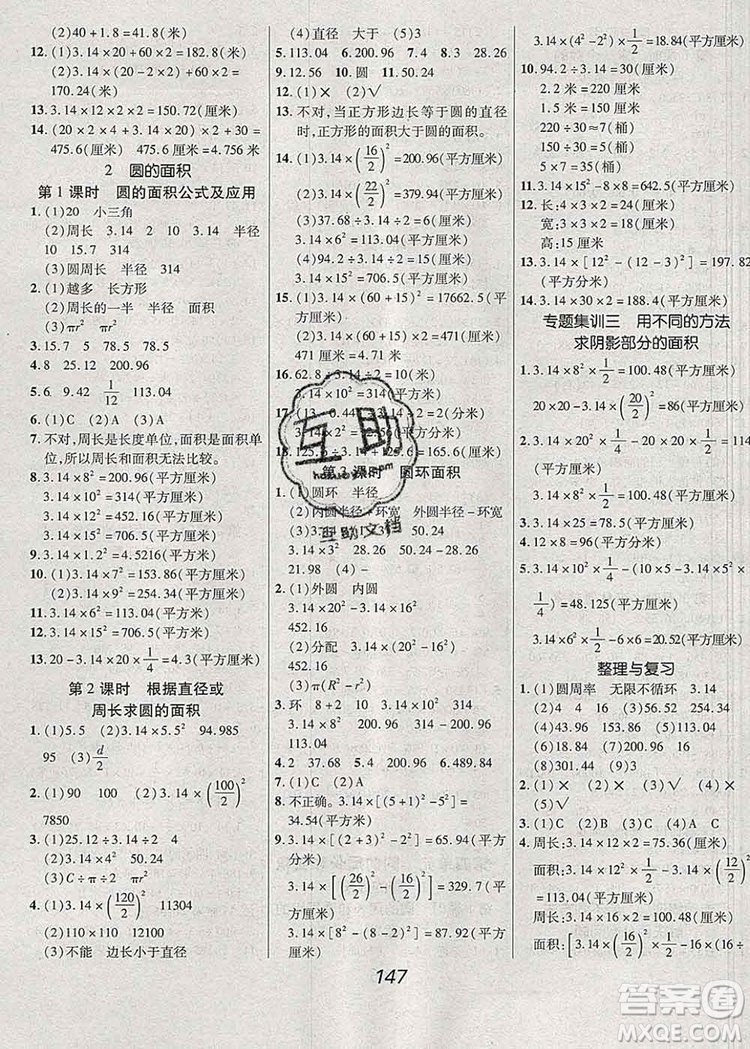 (2)40+1.8=41.8(米)
12.(1)3.14×20+60×2=182.8(厘米)
(2)3.14×(20-2×2)+60×2=
170.24(厘米)
13.3.14×12×2=150.72(厘米)
14.(20×2+3.14×20)×2×2+30=
475.6(厘米) 475.6厘米=4.756米
2 圆的面积
第1课时 圆的面积公式及应用
1.(1)20 小三角
(2)周长 10 3.14 10 半径
10 15.7 314
(3)圆周长 半径 314
2.(1)越多 长方形
(2)周长的一半 半径 面积
(3)πr² πr²
3.15.7 78.5
4.8 25.12 200.96
5.6 9.42 1/12 113.04
6.(1)C (2)A (3)A
7.不对,周长是长度单位,面积是面积单
位,所以周长和面积无法比较。
8.3.14×5²=78.5(平方厘米)
3.14×10²=314(平方厘米)
3.14×12²=452.16(平方米)
3.14×15²=706.5(平方厘米)
9.3.14×1.2²=4.5216(平方米)
10.3.14×7²=153.86(平方厘米)
11.3.14×6²=113.04(平方米)
12.3.14×15²=706.5(平方米)
13.20-3.14×20×1/4=4.3(平方厘米)
第2课时 根据直径或
周长求圆的面积
1.(1)5.5 (2)3.14×5.5² 94.985
95 (3)d/2
2.(1)100 50 (2)3.14×(100/2)²
7850
3.(1)25.12÷3.14÷2 4
(2)3.14×4² 50.24
(3)C÷π÷2 πr²
4.(1)3.14×(120/2)² 11304
(2)110×110 12100
(3)不能 边长小于直径
(4)直角 大于 (5)3
5.113.04 6.200.96 7.4 8.3 28.26
9.12.56 10.圆 11.50.24
12.(1)× (2)√
13.不对,当正方形边长等于圆的直径
时,正方形的面积大于圆的面积。
14.(1)3.14×(16/2)²=200.96(平方厘米)
(2)3.14×(22/2)²=379.94(平方米)
(3)37.68÷3.14÷2=6(厘米)
3.14×6²=113.04(平方厘米)
(4)94.2÷3.14÷2=15(米)
3.14×15²=706.5(平方米)
15.(1)3.14×(60+15)²=17662.5(平方厘米)
(2)3.14×(60+15)×2=471(厘米)
471厘米=4.71米
16.62.8÷3.14÷2=10(厘米)
3.14×10²=314(平方厘米)
17.(13-0.44)÷3.14÷2=2(米)
3.14×2²=12.56(平方米)
第3课时 圆环面积
1.(1)圆环 半径
(2)内圆半径+环宽 外圆半径-环宽
50.24
3.14×3² 28.26 50.24 28.26
21.98 (4)√
2.(1)外圆 内圆
3.14×20²-3.14×16²
452.16
(2)分配 3.14×(20²-16²)
452.16
(3)π(R²-r²)
3.环 8+2 10 3.14×10²-3.14×8²
113.04
4.2 37.68 5.200.96 6.489.84
7.(1)C (2)A
8.不正确。3.14×[(5+1)²-5²]=
34.54(平方厘米)
9.3.14×[(3+2)²-2²]=65.94(平方分米)
3.14×[(26/2)²-(4/2)²]=329.7(平方厘米)
3.14×[8²-(8-2)²]=87.92(平方厘米)
3.14×(4²-2²)×1/2=18.84(平方厘米)
10.94.2÷3.14=30(厘米)
2.2米=220厘米
220÷30≈7(桶)
150÷30=5(桶)
5×7=35(桶)
11.3.14×15²-8×8=642.5(平方厘米)
12.长:4×3×2=24(厘米)
宽:3×3×2=18(厘米)
高:15厘米
13.3.14×[12²-(12-3)²]=197.82
(平方分米)
14.3.14×30×2=188.4(平方米)
专题集训三 用不同的方法
求阴影部分的面积
1.3.14×8²×1/2=100.48(平方厘米)
20×20-3.14×(20/2)²=86(平方厘米)
3.14×25=78.5(平方厘米)
4.12×8=96(平方厘米)
整理与复习
1.(1)圆周率 无限不循环 3.14
(2)4 4 16 (3)56.52 254.34
(4)43.96 153.86 (5)9.42
(8)301.44 (9)25.12
2.(1)× (2)× (3)√ (4)×
(5)√
3.(1)C (2)C (3)A (4)C
=113.04(平方厘米)
周长:3.14×16×2=100.48(厘米)
147
互助
互助文档
答案圈
MXQE.COM